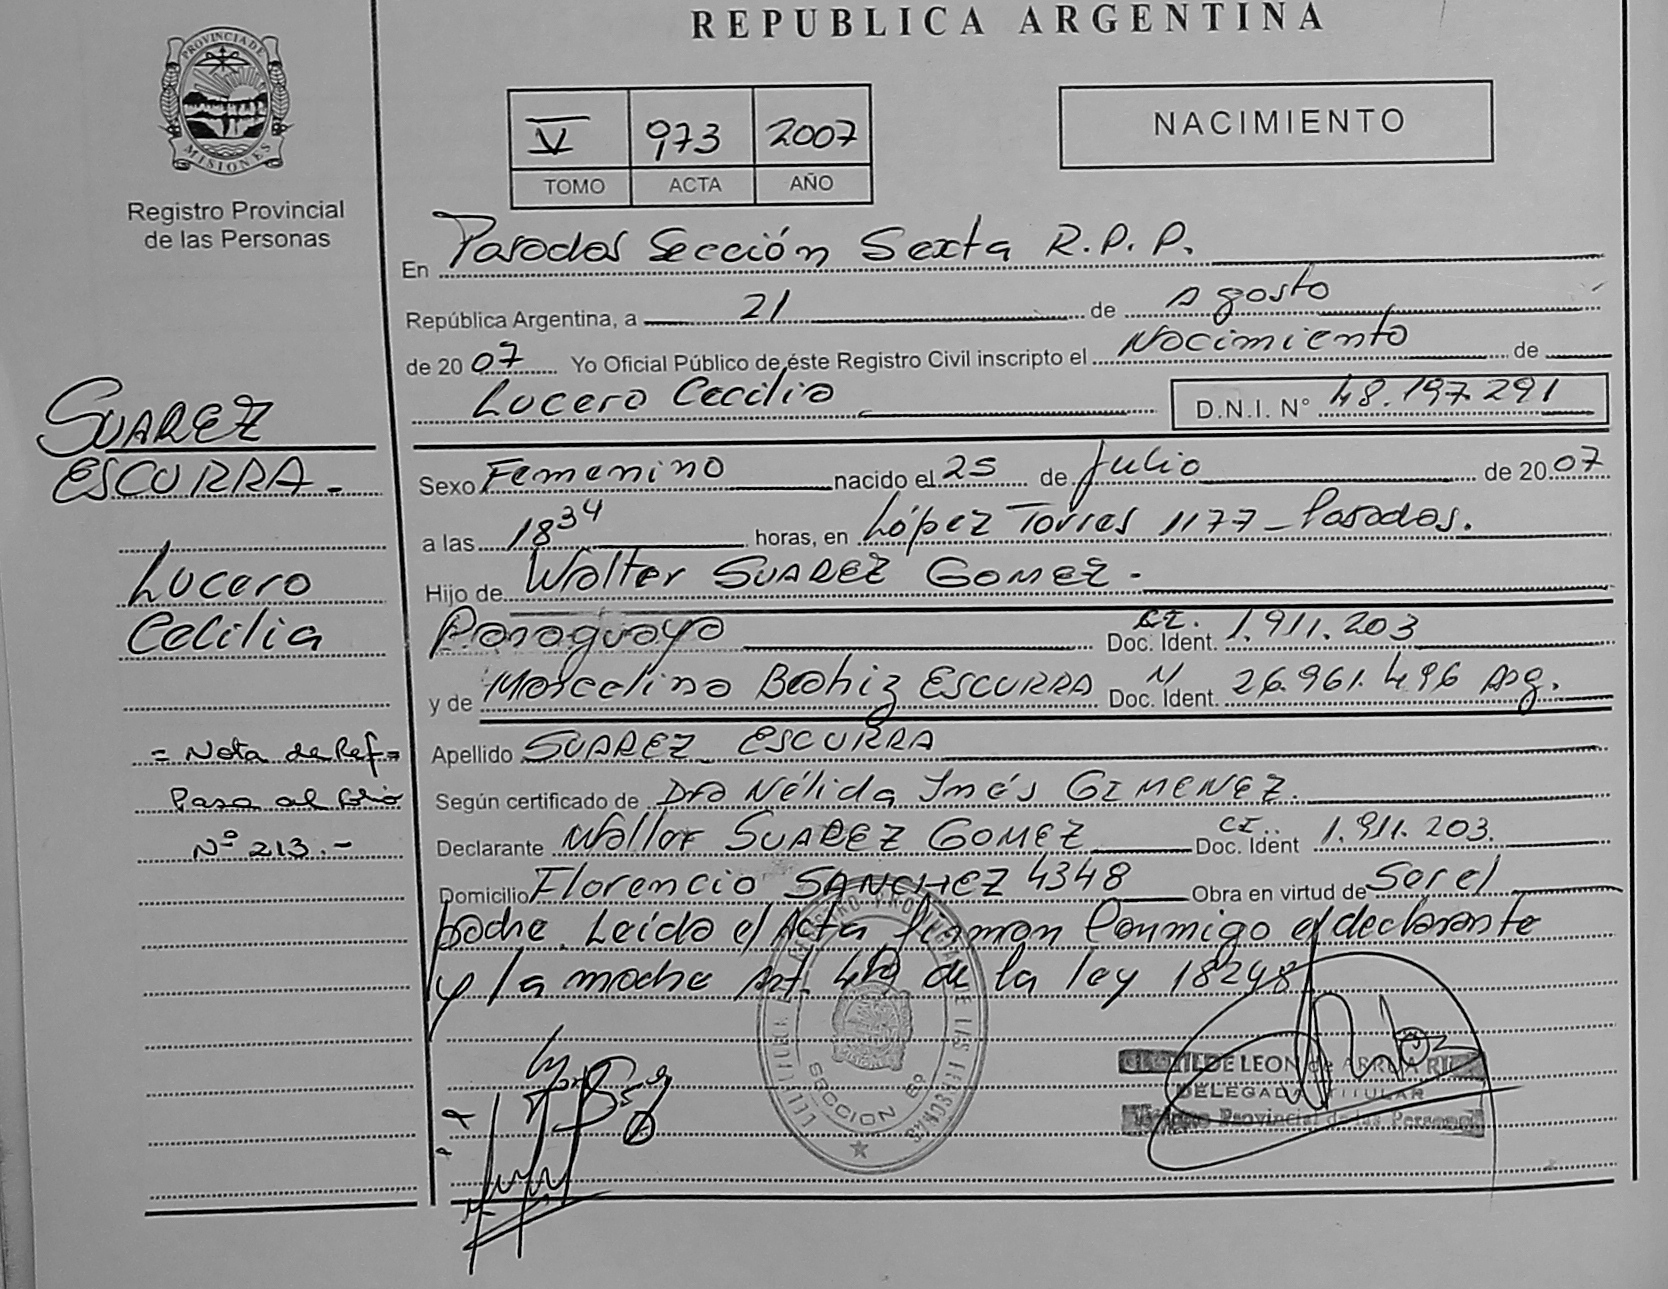 REPUBLICA ARGENTINA
PROVINCIA DE
MISIONES
Registro Provincial
de las Personas
V 973 2007
TOMO ACTA AÑO
NACIMIENTO
En Posadas Sección Sexta R.P.P.
República Argentina, a 21 de Agosto
de 2007 Yo Oficial Público de éste Registro Civil inscripto el Nacimiento de
Lucero Cecilia D.N.I. N° 48.197.291
SUAREZ
ESCURRA.-
Lucero
Cecilia
= Nota de Ref =
Pasa al folio
Nº 213.-
Sexo Femenino nacido el 25 de Julio de 2007
a las 18 34 horas, en López Torres 1177 - Posadas.
Hijo de Walter SUAREZ GOMEZ.-
Paraguayo Doc. Ident. CI. 1.911.203
y de Marcelina Beatriz ESCURRA Doc. Ident. N 26.961.496 Arg.
Apellido SUAREZ ESCURRA
Según certificado de Dra Nélida Inés GIMENEZ.
Declarante Walter SUAREZ GOMEZ Doc. Ident CI. 1.911.203.
Domicilio Florencio SANCHEZ 4348 Obra en virtud de Ser el
padre. Leída el Acta firman conmigo el declarante
y la madre Art. 4º de la ley 18248
SECCION 6º
DE LEON de
DELEGADA TITULAR
Provincial de las Personas